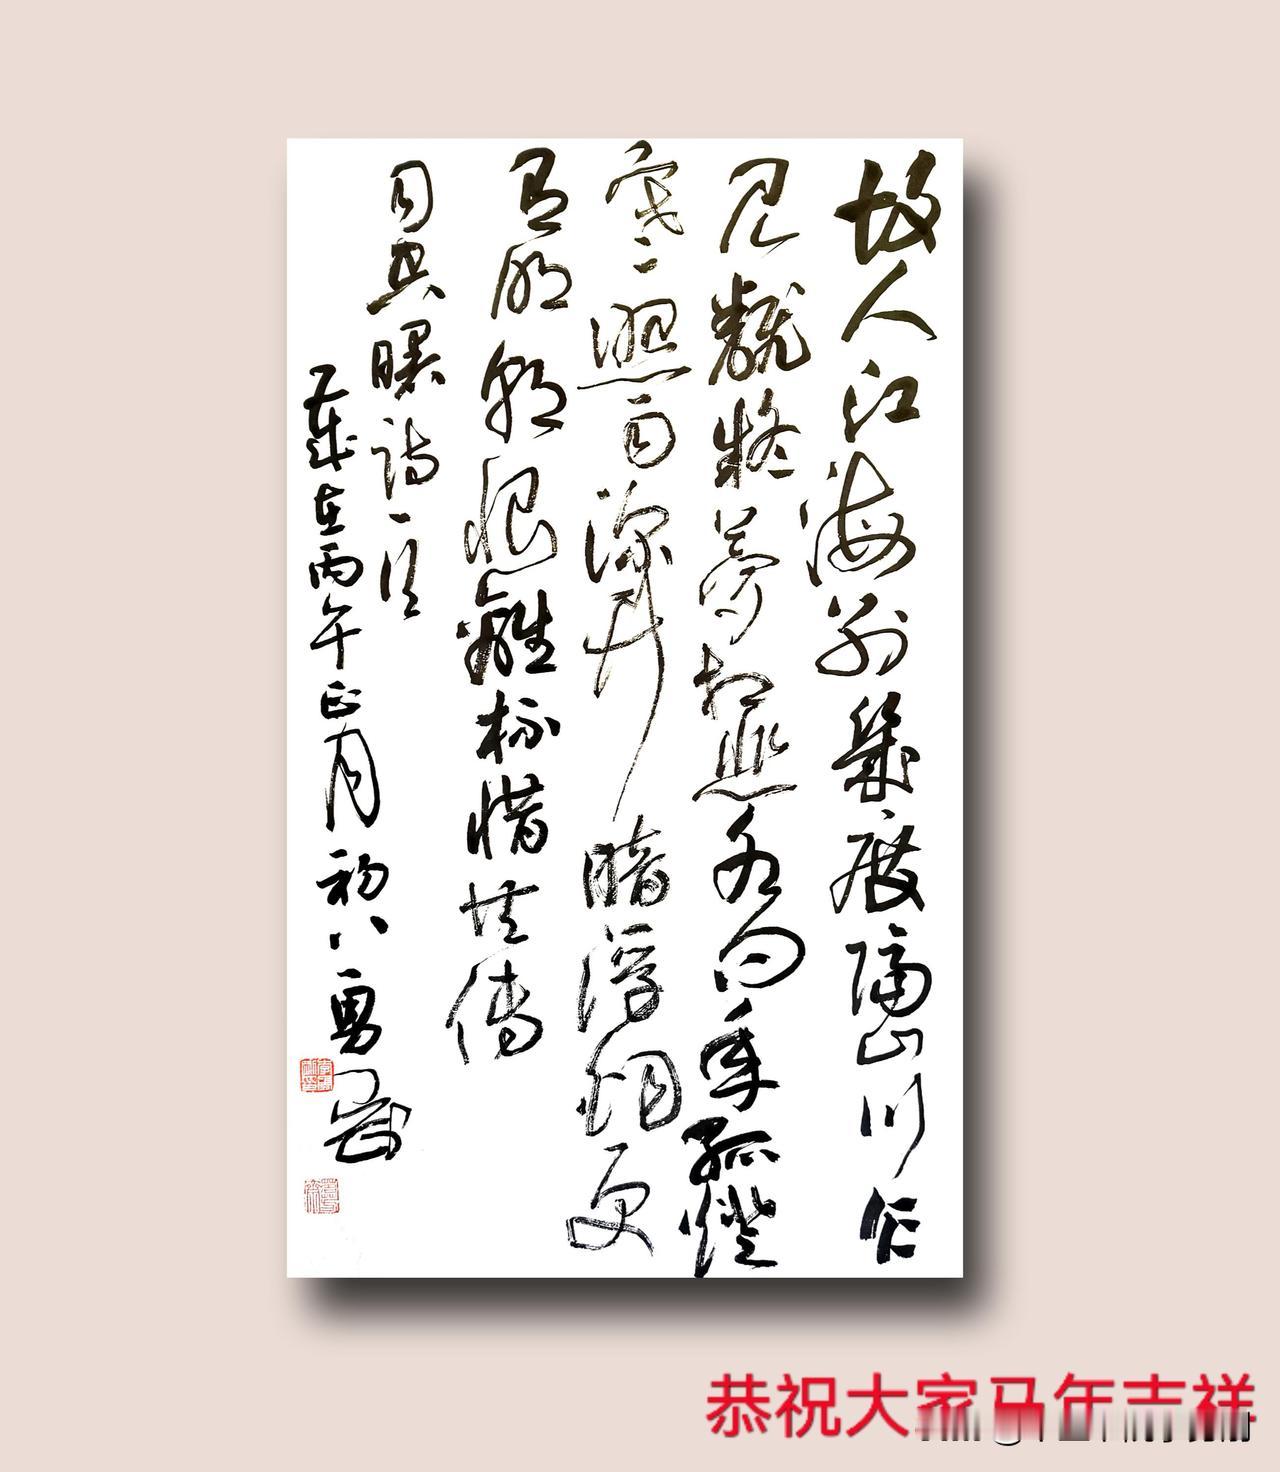 故人江海别几度隔山川乍
见翻疑梦相悲各问年孤灯
寒二照雨深竹暗浮烟更
有明朝恨离杯惜共传
司空曙诗一首
岁在丙午正月初八勇
恭祝大家马年吉祥